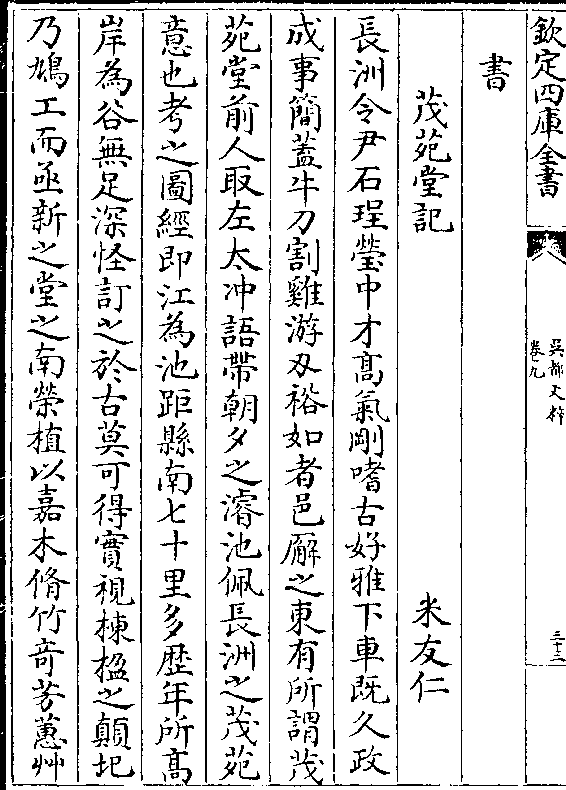 欽定四庫全書
吳都文粹
卷九
三十二
書
茂苑堂記
米友仁
長洲令尹石珵瑩中才髙氣剛嗜古好雅下車既久政
成事簡蓋牛刀割雞游刃裕如者邑廨之東有所謂茂
苑堂前人取左太冲語帶朝夕之濬池佩長洲之茂苑
意也考之圖經即江為池距縣南七十里多歴年所髙
岸為谷無足深怪訂之於古莫可得實視棟楹之顛圯
乃鳩工而亟新之堂之南榮植以嘉木脩竹竒芳蕙艸